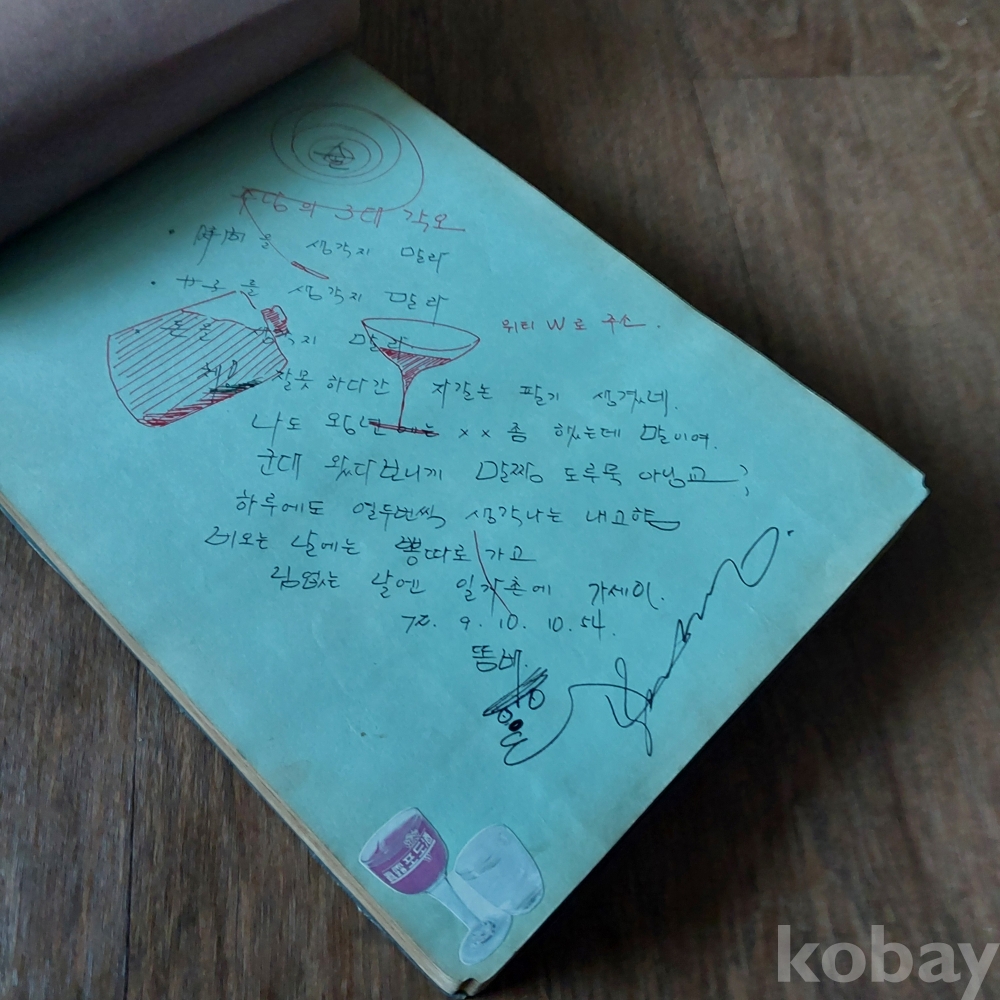 술
주당의 3대 각오
· 時間을 생각지 말라
· 를 생각지 말라
· 돈을 생각지 말라
위티 W로 주소.
잘못 하다간 자갈논 팔기 생겼네.
나도 왕년에는 xx 좀 했는데 말이여.
군대 왔다보니께 말짱 도루묵 아닝교;
하루에도 열두번씩 생각나는 내고향
비오는 날에는 뽕따로 가고
님없는 날엔 일각촌에 가세이.
72. 9. 10. 10.54.
똠배.
포도주
kobay